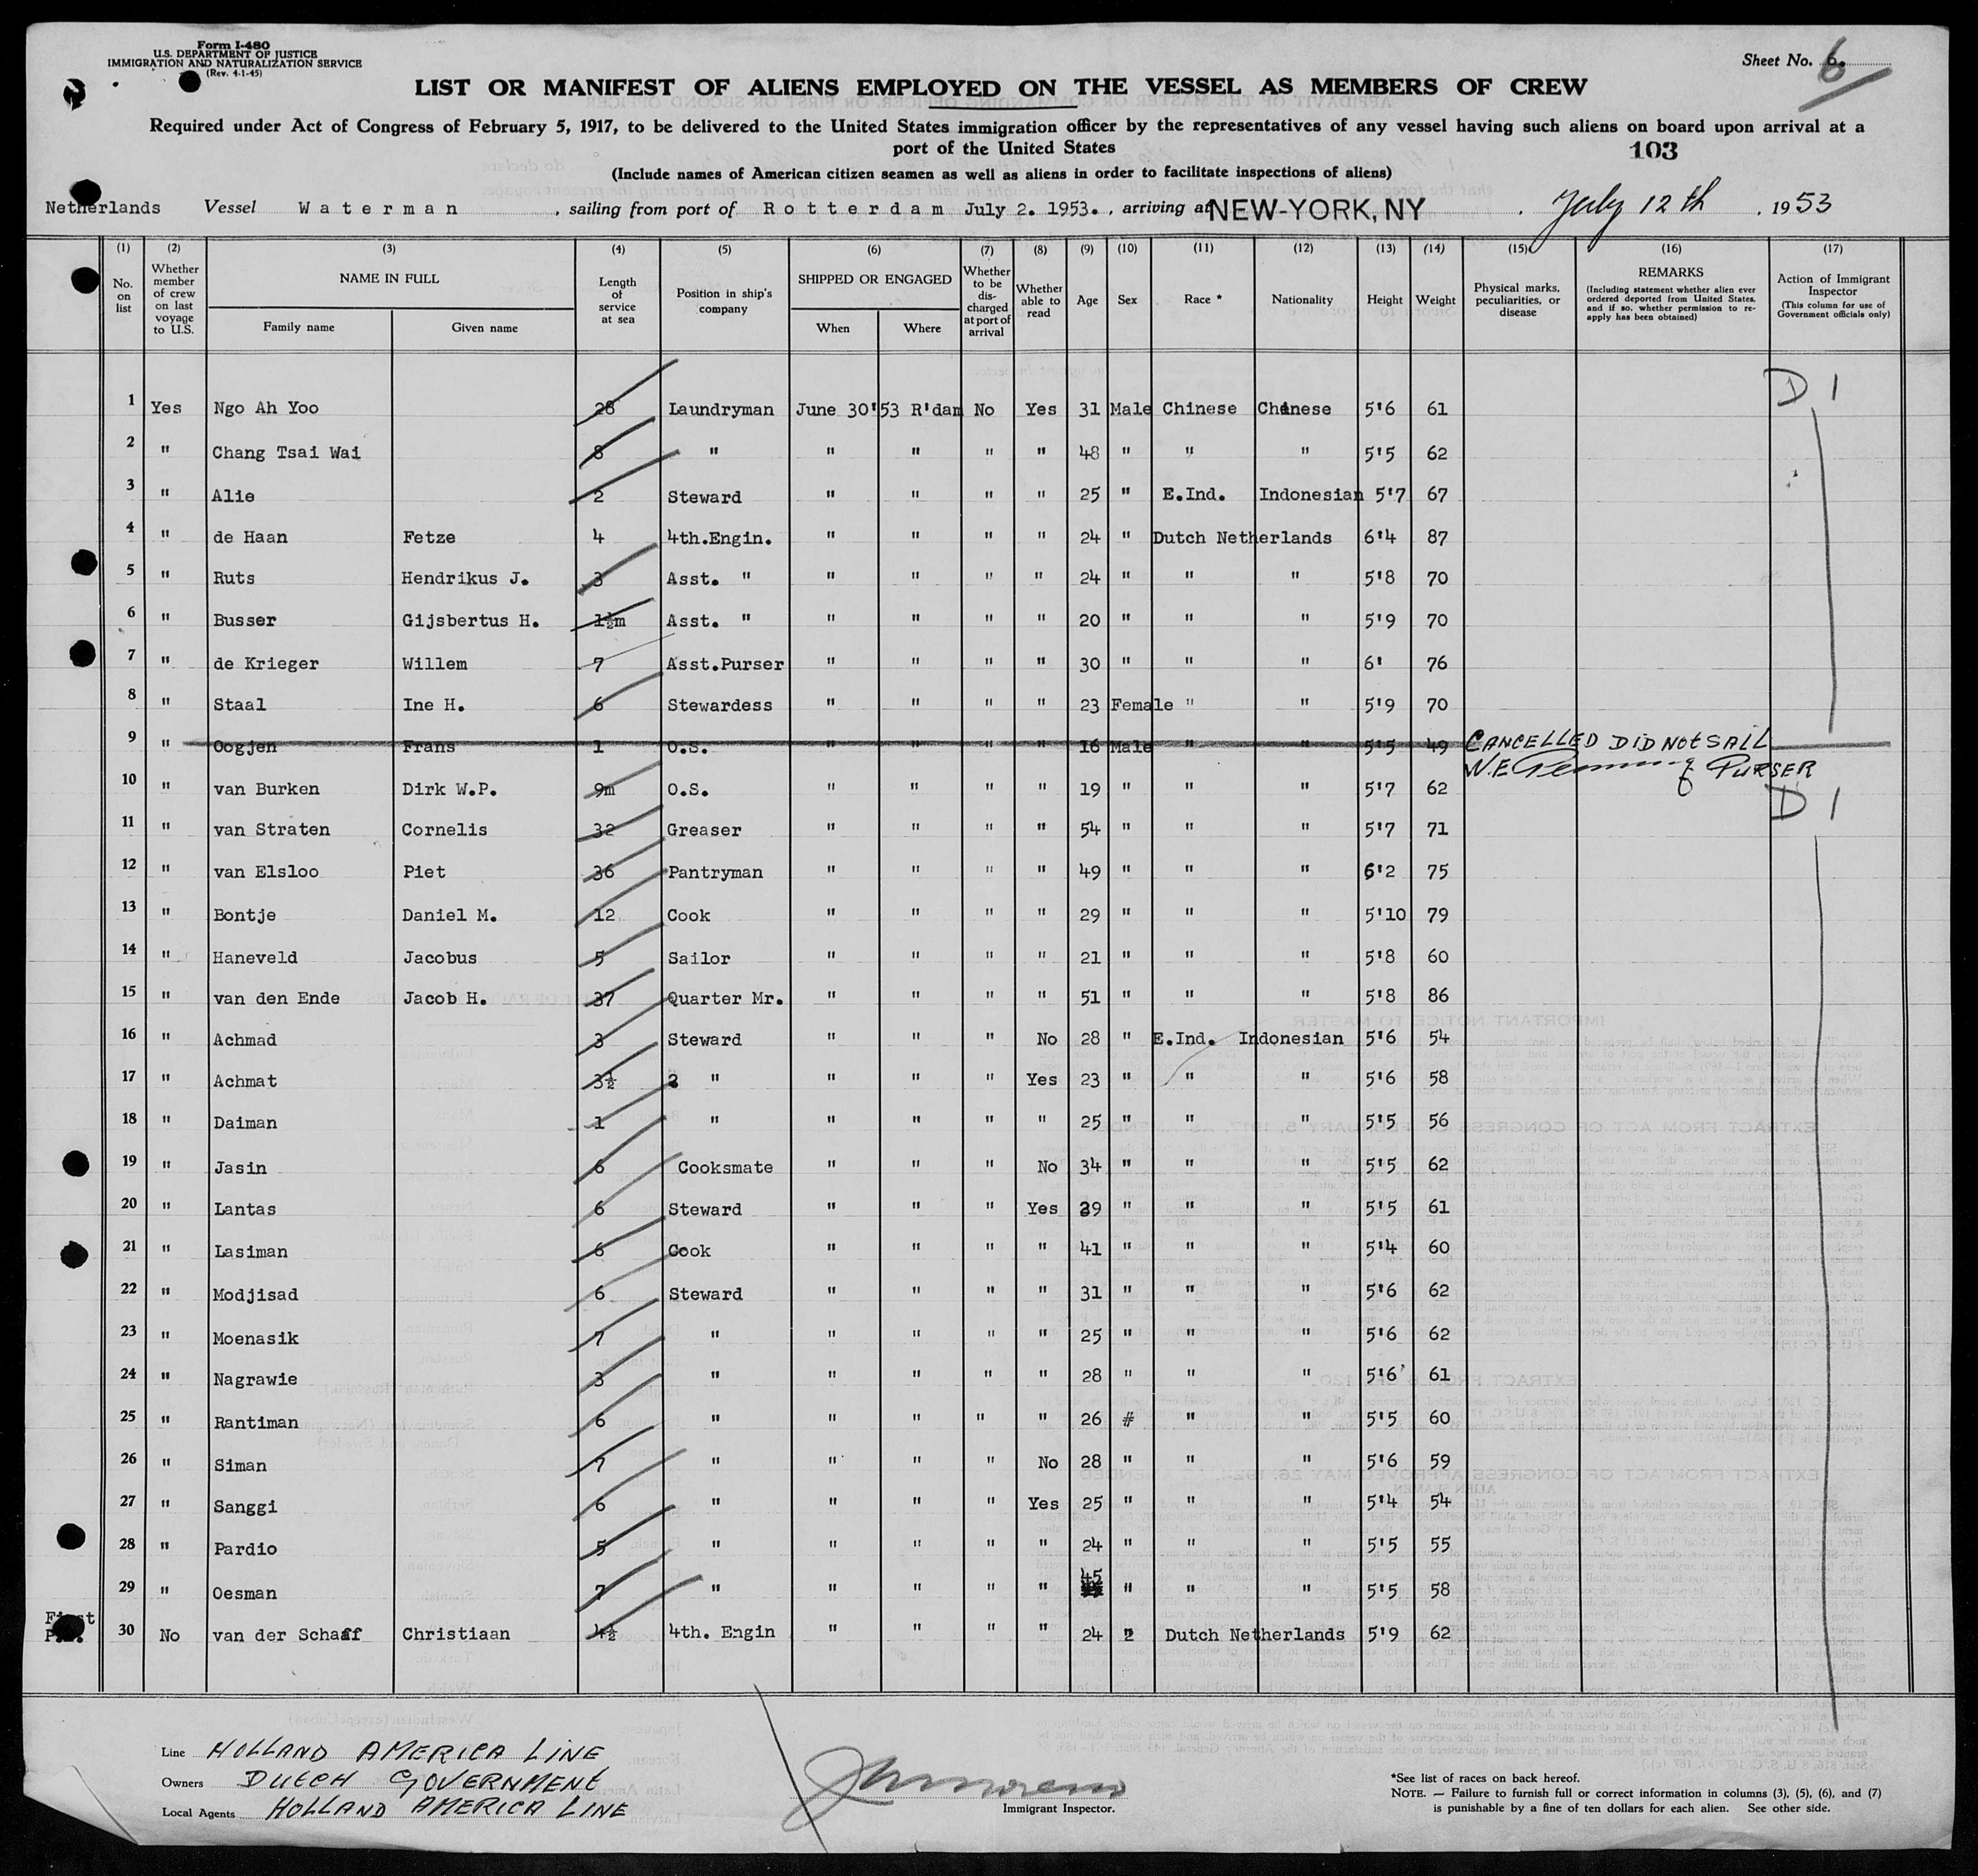 Form I-480
U.S. DEPARTMENT OF JUSTICE
IMMIGRATION AND NATURALIZATION SERVICE
(Rev. 4-1-45)
Sheet No. 6.
6
LIST OR MANIFEST OF ALIENS EMPLOYED ON THE VESSEL AS MEMBERS OF CREW
Required under Act of Congress of February 5, 1917, to be delivered to the United States immigration officer by the representatives of any vessel having such aliens on board upon arrival at a
port of the United States
103
(Include names of American citizen seamen as well as aliens in order to facilitate inspections of aliens)
Netherlands Vessel Waterman, sailing from port of Rotterdam July 2. 1953., arriving at NEW-YORK, NY. July 12th, 1953
(1) (2) (3) (4) (5) (6) (7) (8) (9) (10) (11) (12) (13) (14) (15) (16) (17)
No. on list
Whether member of crew on last voyage to U.S.
NAME IN FULL
Family name Given name
Length of service at sea
Position in ship's company
SHIPPED OR ENGAGED
When Where
Whether to be discharged at port of arrival
Whether able to read
Age
Sex
Race *
Nationality
Height
Weight
Physical marks, peculiarities, or disease
REMARKS
(Including statement whether alien ever ordered deported from United States, and if so, whether permission to re-apply has been obtained)
Action of Immigrant Inspector
(This column for use of Government officials only)
D 1
1 Yes Ngo Ah Yoo 28 Laundryman June 30'53 R'dam No Yes 31 Male Chinese Chinese 5'6 61
2 " Chang Tsai Wai 8 " " " " " 48 " " " 5'5 62
3 " Alie 2 Steward " " " " 25 " E.Ind. Indonesian 5'7 67
4 " de Haan Fetze 4 4th.Engin. " " " " 24 " Dutch Netherlands 6'4 87
5 " Ruts Hendrikus J. 3 Asst. " " " " " 24 " " " 5'8 70
6 " Busser Gijsbertus H. 1½m Asst. " " " " " 20 " " " 5'9 70
7 " de Krieger Willem 7 Asst.Purser " " " " 30 " " " 6' 76
8 " Staal Ine H. 6 Stewardess " " " " 23 Female " " 5'9 70
9 " Oogjen Frans 1 O.S. " " " " 16 Male " " 5'5 49 CANCELLED DID NOt SAIL
W.E. PURSER
D 1
10 " van Burken Dirk W.P. 9m O.S. " " " " 19 " " " 5'7 62
11 " van Straten Cornelis 32 Greaser " " " " 54 " " " 5'7 71
12 " van Elsloo Piet 36 Pantryman " " " " 49 " " " 6'2 75
13 " Bontje Daniel M. 12 Cook " " " " 29 " " " 5'10 79
14 " Haneveld Jacobus 5 Sailor " " " " 21 " " " 5'8 60
15 " van den Ende Jacob H. 37 Quarter Mr. " " " " 51 " " " 5'8 86
16 " Achmad 3 Steward " " " No 28 " E.Ind. Indonesian 5'6 54
17 " Achmat 3½ " " " " Yes 23 " " " 5'6 58
18 " Daiman 1 " " " " " 25 " " " 5'5 56
19 " Jasin 6 Cooksmate " " " No 34 " " " 5'5 62
20 " Lantas 6 Steward " " " Yes 39 " " " 5'5 61
21 " Lasiman 6 Cook " " " " 41 " " " 5'4 60
22 " Modjisad 6 Steward " " " " 31 " " " 5'6 62
23 " Moenasik 7 " " " " " 25 " " " 5'6 62
24 " Nagrawie 3 " " " " " 28 " " " 5'6' 61
25 " Rantiman 6 " " " " " 26 # " " 5'5 60
26 " Siman 7 " " " " No 28 " " " 5'6 59
27 " Sanggi 6 " " " " Yes 25 " " " 5'4 54
28 " Pardio 5 " " " " " 24 " " " 5'5 55
29 " Oesman 7 " " " " " 45 " " " 5'5 58
First
30 No van der Schaaff Christiaan 4½ 4th. Engin " " " " 24 2 Dutch Netherlands 5'9 62
Line HOLLAND AMERICA LINE
Owners DUTCH GOVERNMENT
Local Agents HOLLAND AMERICA LINE
Immigrant Inspector.
*See list of races on back hereof.
NOTE. — Failure to furnish full or correct information in columns (3), (5), (6), and (7)
is punishable by a fine of ten dollars for each alien. See other side.